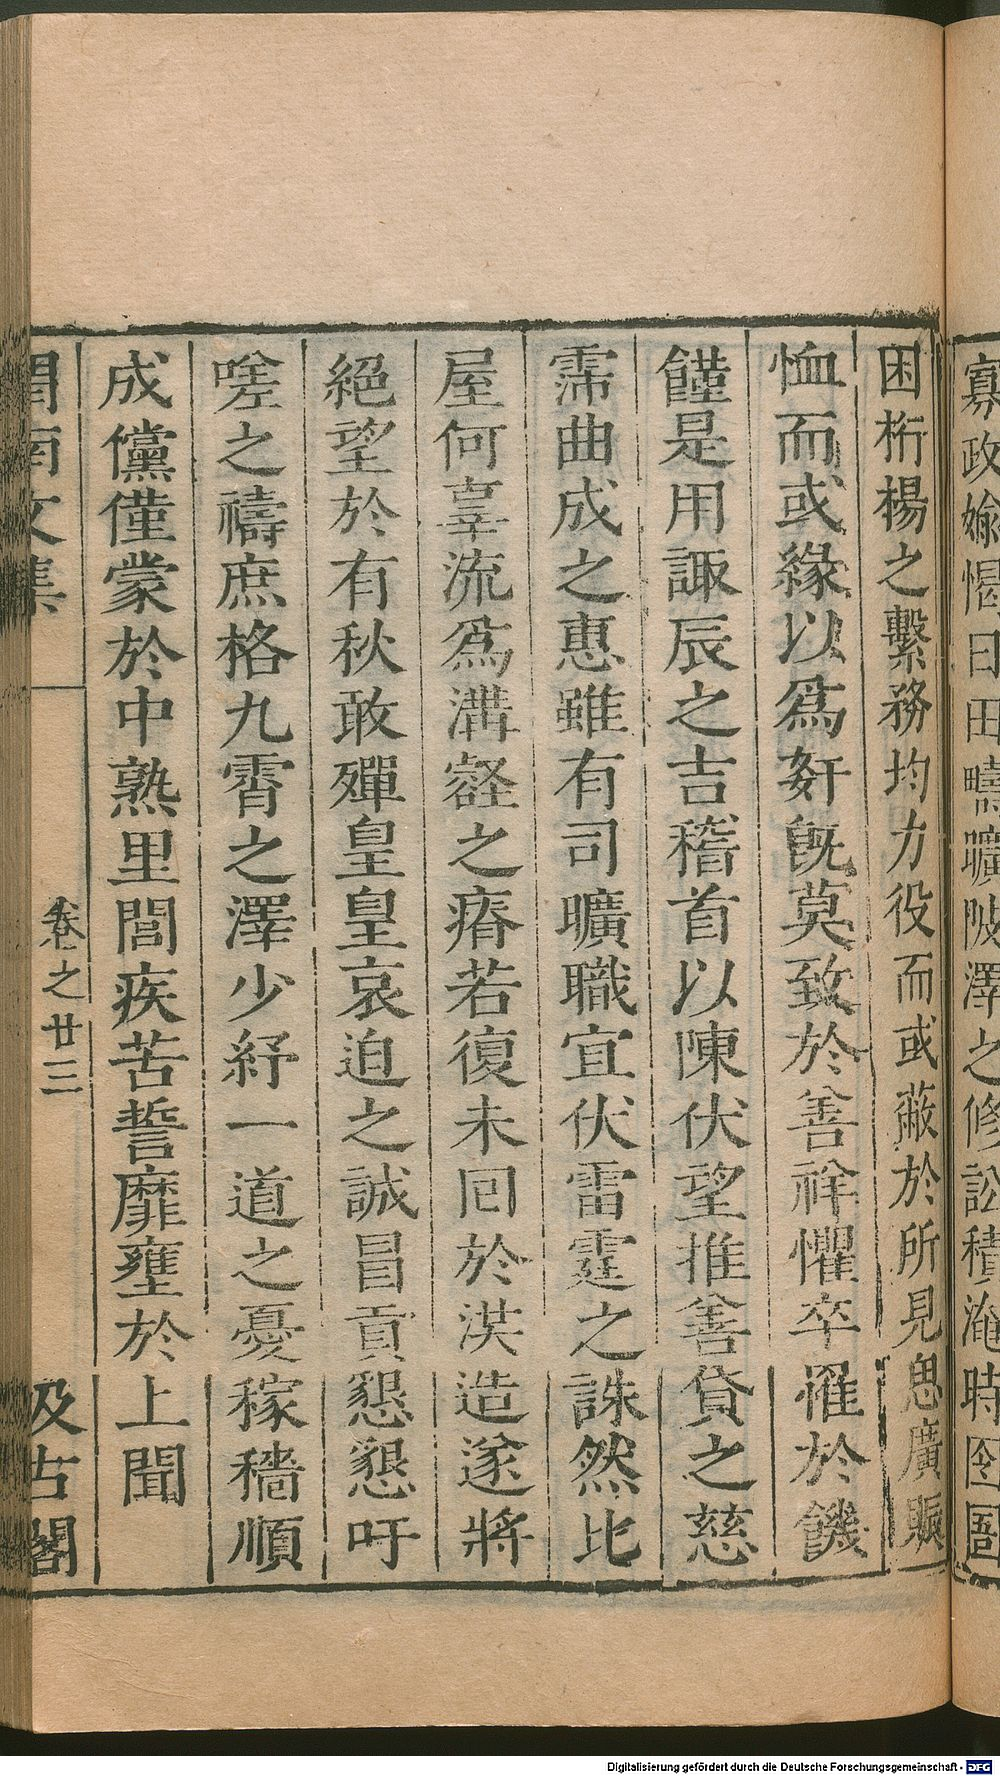 寡政媮愒日田疇曠陂澤之修訟積淹時囹圄
困桁楊之繫務均力役而或蔽於所見思廣賑
恤而或緣以爲姧旣莫致於善祥懼卒罹於饑
饉是用諏辰之吉稽首以陳伏望推善貸之慈
霈曲成之惠雖有司曠職宜伏雷霆之誅然比
屋何辜流爲溝壑之瘠若復未囘於洪造遂將
絕望於有秋敢殫皇皇哀迫之誠冒貢懇懇吁
嗟之禱庶格九霄之澤少紓一道之憂稼穡順
成儻僅蒙於中熟里閭疾苦誓靡壅於上聞
渭南文集 卷之廿三 汲古閣
Digitalisierung gefördert durch die Deutsche Forschungsgemeinschaft - DFG